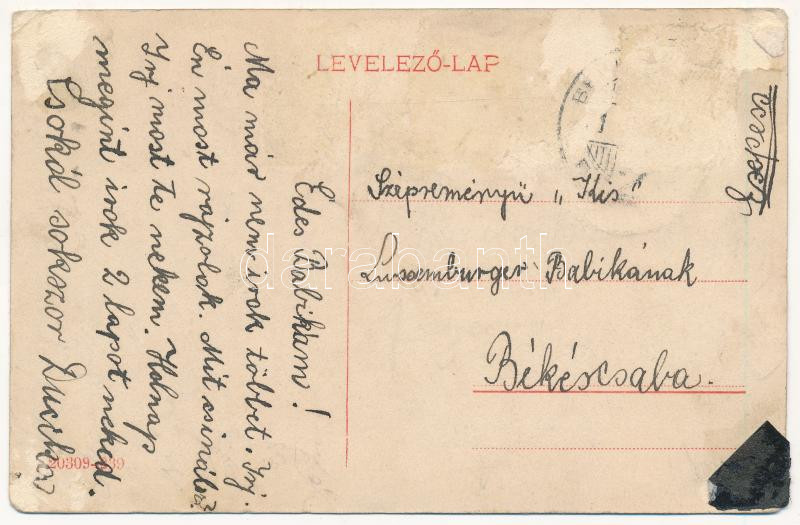 LEVELEZŐ-LAP
Édes Babikám!
Ma már nem irok többet. Irj.
Én most rajzolok. Mit csinálsz?
Irj most te nekem. Holnap
megint irok 2 lapot neked.
Csokól sokszor Duci
Szépreményü „Kis"
Luxemburger Babikának
Békéscsaba.
20309-
darabanth